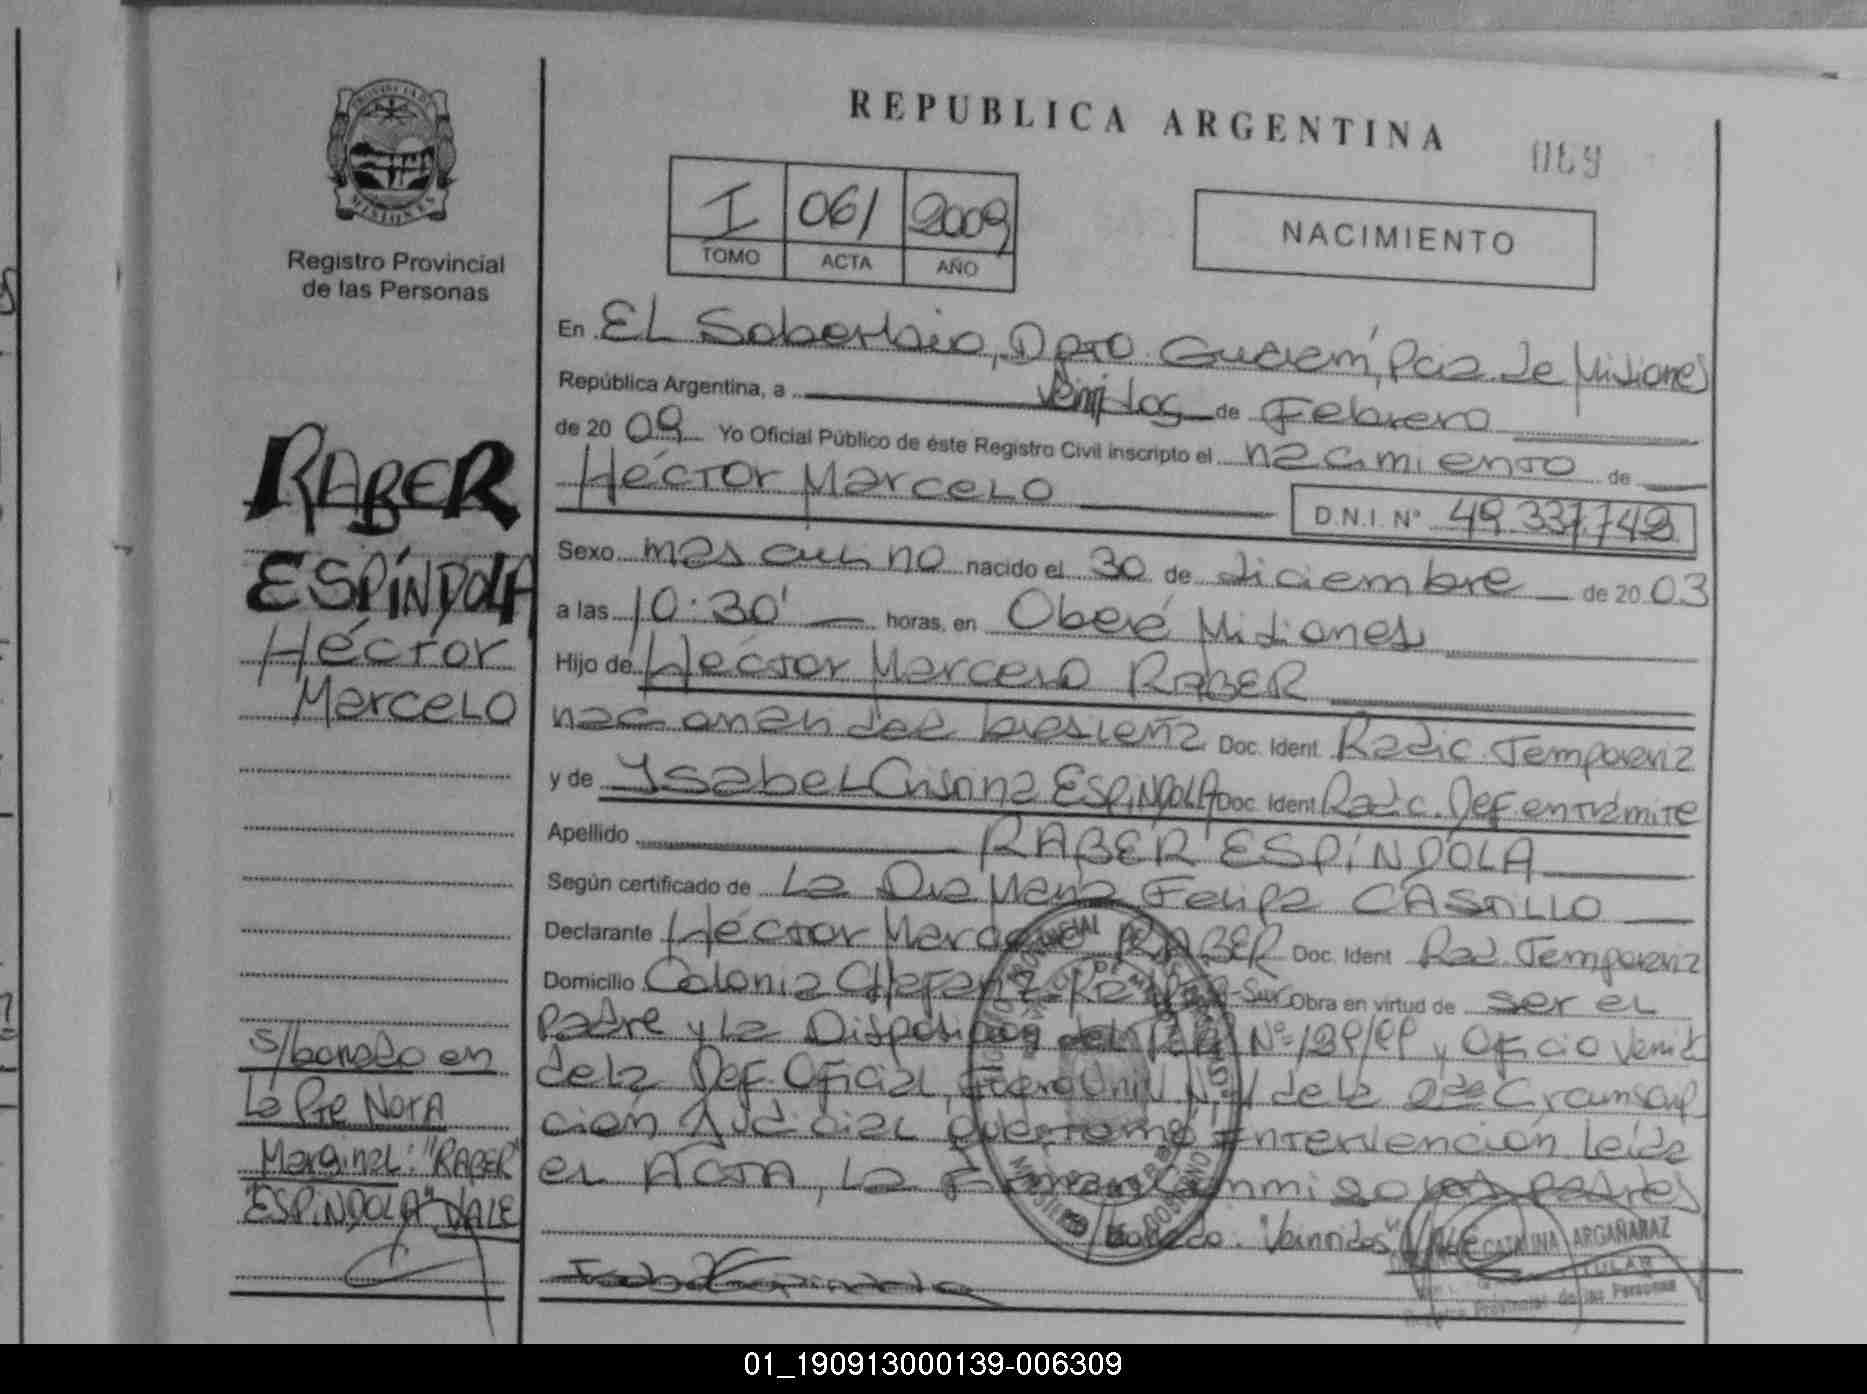 REPUBLICA ARGENTINA
069
PROVINCIA DE
MISIONES
Registro Provincial
de las Personas
I 061 2009
TOMO ACTA AÑO
NACIMIENTO
En EL Soberbio, Dpto Guaraní, Pcia de Misiones
República Argentina, a Veintidos de Febrero
de 20 09 Yo Oficial Público de éste Registro Civil inscripto el nacimiento de
Héctor Marcelo D.N.I. Nº 49.337.748
Sexo masculino nacido el 30 de diciembre de 20 03
a las 10:30' horas, en Oberá Misiones
Hijo de Héctor Marcelo RABER
nacionalidad brasileña Doc. Ident. Radic. Temporaria
y de Ysabel Cristina ESPÍNDOLA Doc. Ident. Radic. Def. en trámite
Apellido RABER ESPÍNDOLA
Según certificado de La Dra María Felipa CASTILLO
Declarante Héctor Marcelo RABER Doc. Ident Rad. Temporaria
Domicilio Colonia Obra en virtud de ser el
Padre y La Disposición Nº y Oficio
de la Def. Oficial, Nº 1 de la 2da Circunscrip
ción Judicial que tomó intervención Leída
el ACTA, La Firman conmigo los padres
s/borrado: "Veintidos" VALE
CATALINA ARGAÑARAZ
TITULAR
Registro Provincial de las Personas
RABER
ESPÍNDOLA
Héctor
Marcelo
s/borrado en
La Pte Nota
Marginal: "RABER
ESPÍNDOLA" VALE
01_190913000139-006309